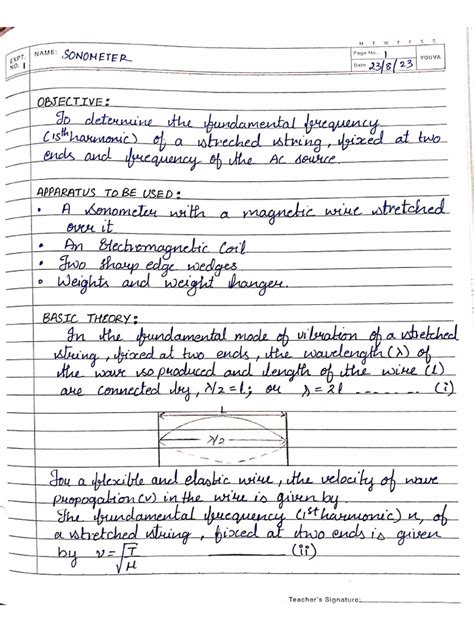 M T W T F S S
EXPT. NO. 1
NAME: SONOMETER
Page No.: 1
Date: 23/8/23
YOUVA
OBJECTIVE:
To determine the fundamental frequency
(15th harmonic) of a streched string, fixed at two
ends and frequency of the AC source.
APPARATUS TO BE USED:
• A sonometer with a magnetic wire stretched
over it.
• An Electromagnetic Coil
• Two sharp edge wedges.
• Weights and weight hanger.
BASIC THEORY:
In the fundamental mode of vibration of a stretched
string, fixed at two ends, the wavelength (λ) of
the wave so produced and length of the wire (l)
are connected by, λ/2 = l; or λ = 2l ------ (i)
L
λ/2
For a flexible and elastic wire, the velocity of wave
propogation (v) in the wire is given by
The fundamental frequency (1st harmonic) n, of
a stretched string, fixed at two ends is given
by v = √T/μ ______ (ii)
Teacher's Signature: